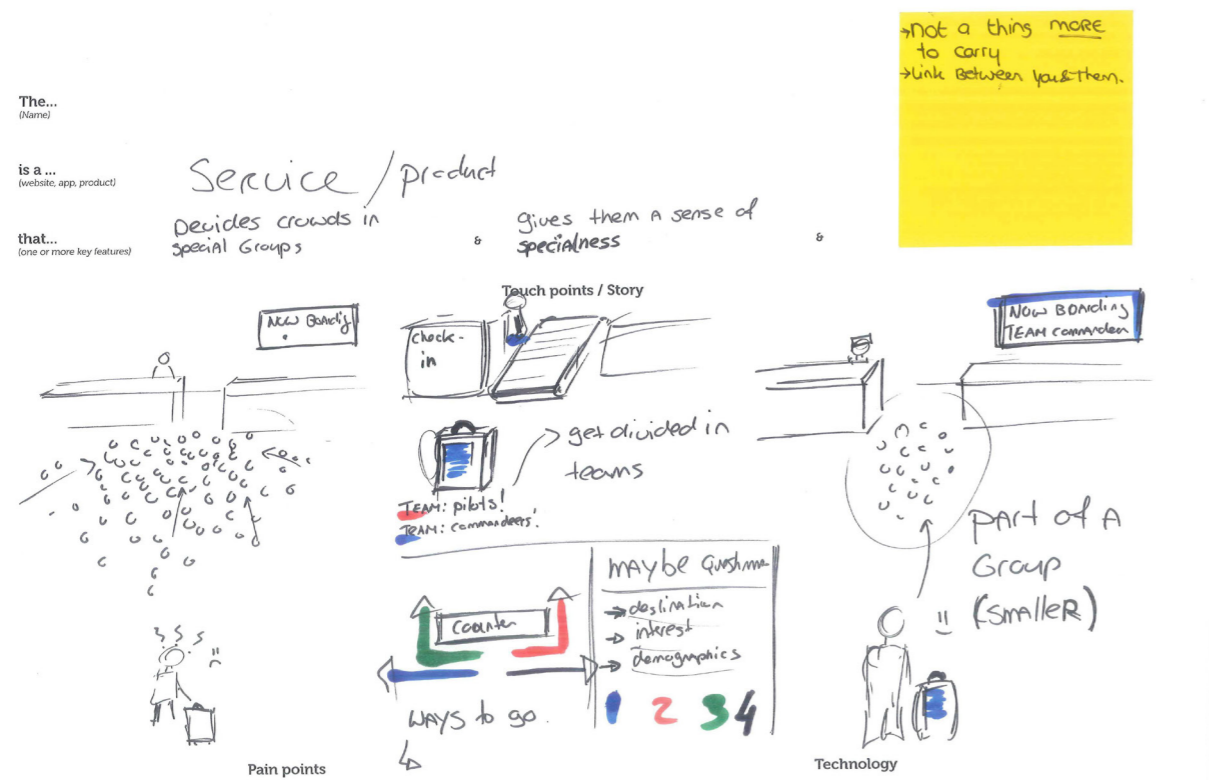 →not a thing MORE
to carry
→Link Between you&them.
The...
(Name)
is a ...
(website, app, product)
Service / product
that...
(one or more key features)
Devides crowds in
special Groups
&
gives them a sense of
specialness
&
Touch points / Story
Now Boarding
check-
in
→ get divided in
teams
TEAM: pilots!
TEAM: commandeers!
Now BOArding
TEAM commandeer
PArt of A
Group
(SmalleR)
counter
WAYS to go.
MAYbe
→ destination
→ interest
→ demographics
1 2 3 4
Pain points
Technology